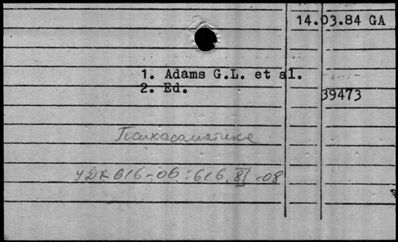 14.03.84 GA
1. Adams G.L. et al.
2. Ed.
39473
Психосоматика
УДК 616-06:616.8[-08